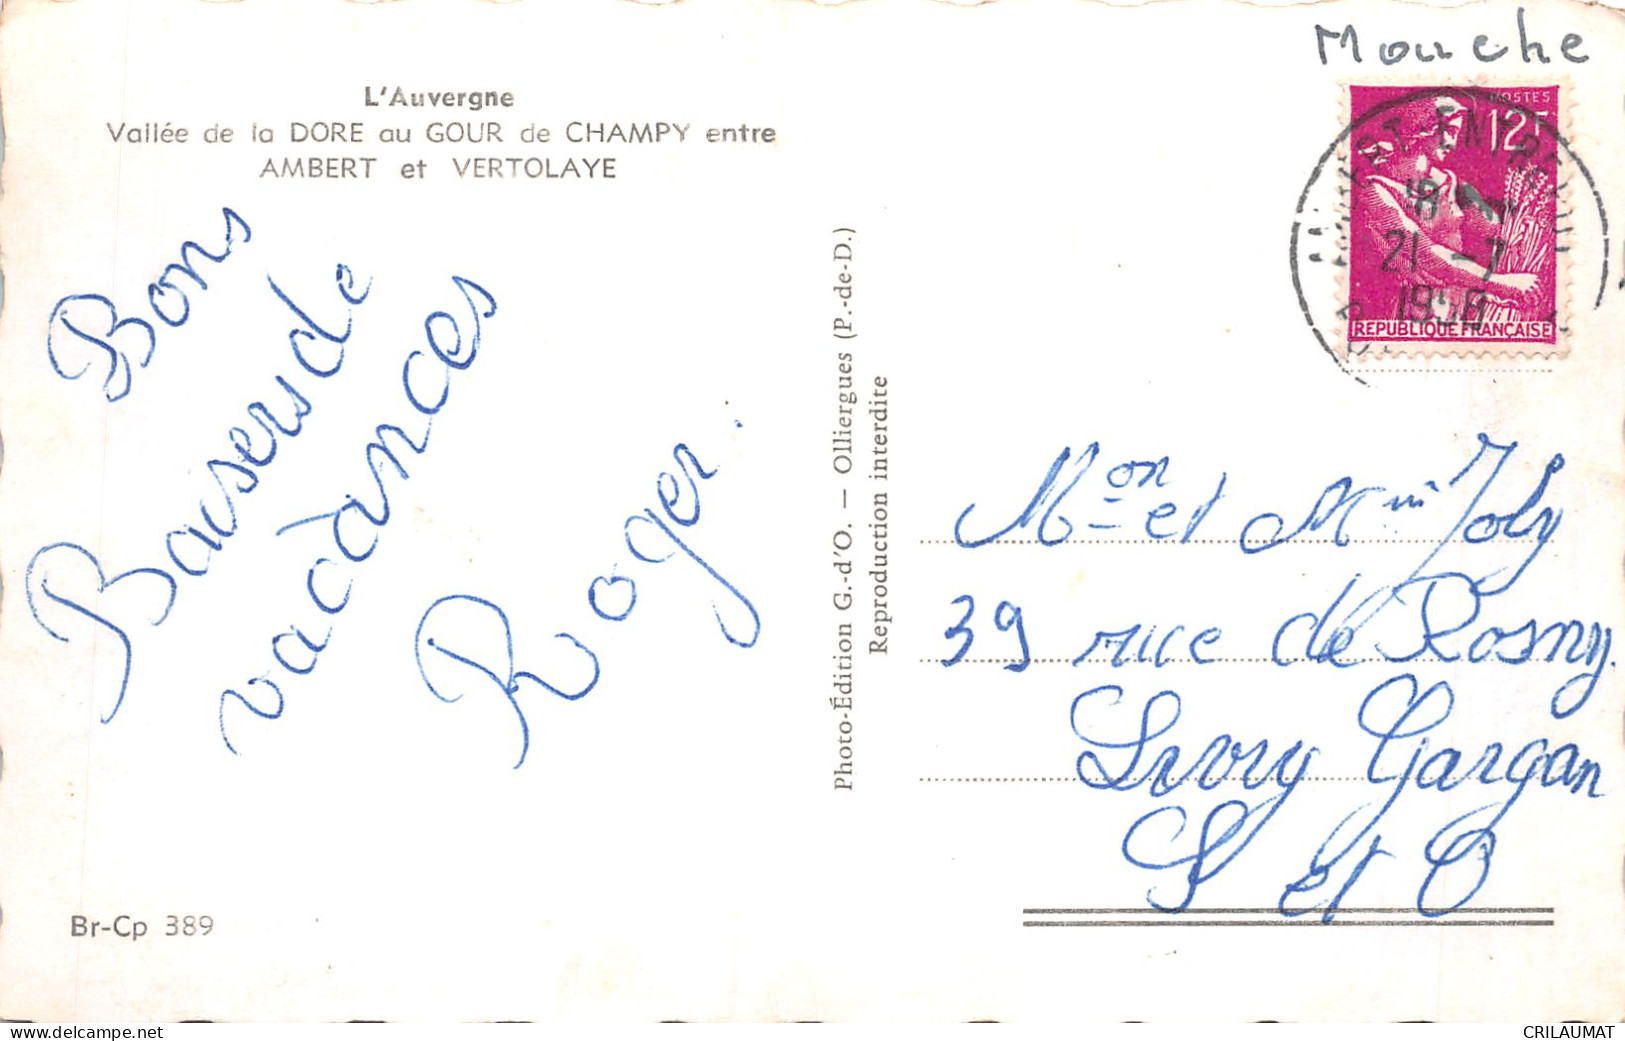 L'Auvergne
Vallée de la DORE au GOUR de CHAMPY entre
AMBERT et VERTOLAYE
Bons
Baisers de
vacances
Roger.
Br-Cp 389
Photo-Édition G.-d'O. — Olliergues (P.-de-D.)
Reproduction interdite
Mouche
POSTES
12F
REPUBLIQUE FRANÇAISE
AMBERT-ENTREPOT
18
21 -7
1958
Mon et Mme Joly
39 rue de Rosny
Livry Gargan
S et O
CRILAUMAT